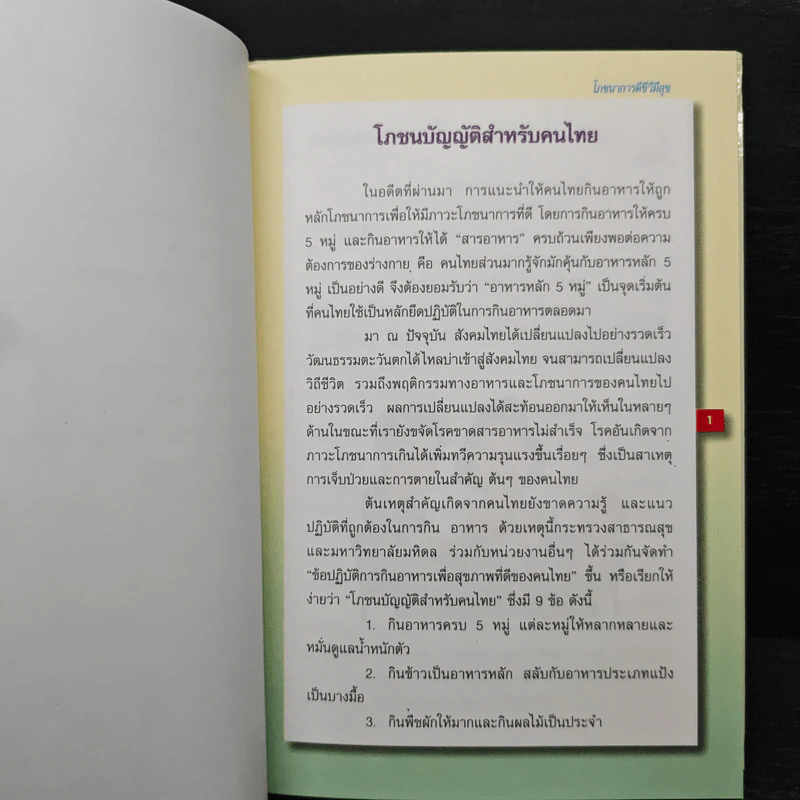 โภชนาการดีชีวีมีสุข
โภชนบัญญัติสำหรับคนไทย
ในอดีตที่ผ่านมา การแนะนำให้คนไทยกินอาหารให้ถูก
หลักโภชนาการเพื่อให้มีภาวะโภชนาการที่ดี โดยการกินอาหารให้ครบ
5 หมู่ และกินอาหารให้ได้ “สารอาหาร” ครบถ้วนเพียงพอต่อความ
ต้องการของร่างกาย คือ คนไทยส่วนมากรู้จักมักคุ้นกับอาหารหลัก 5
หมู่ เป็นอย่างดี จึงต้องยอมรับว่า “อาหารหลัก 5 หมู่” เป็นจุดเริ่มต้น
ที่คนไทยใช้เป็นหลักยึดปฏิบัติในการกินอาหารตลอดมา
มา ณ ปัจจุบัน สังคมไทยได้เปลี่ยนแปลงไปอย่างรวดเร็ว
วัฒนธรรมตะวันตกได้ไหลบ่าเข้าสู่สังคมไทย จนสามารถเปลี่ยนแปลง
วิถีชีวิต รวมถึงพฤติกรรมทางอาหารและโภชนาการของคนไทยไป
อย่างรวดเร็ว ผลการเปลี่ยนแปลงได้สะท้อนออกมาให้เห็นในหลายๆ
ด้านในขณะที่เรายังขจัดโรคขาดสารอาหารไม่สำเร็จ โรคอันเกิดจาก
ภาวะโภชนาการเกินได้เพิ่มทวีความรุนแรงขึ้นเรื่อยๆ ซึ่งเป็นสาเหตุ
การเจ็บป่วยและการตายในสำคัญ ต้นๆ ของคนไทย
1
ต้นเหตุสำคัญเกิดจากคนไทยยังขาดความรู้ และแนว
ปฏิบัติที่ถูกต้องในการกิน อาหาร ด้วยเหตุนี้กระทรวงสาธารณสุข
และมหาวิทยาลัยมหิดล ร่วมกับหน่วยงานอื่นๆ ได้ร่วมกันจัดทำ
“ข้อปฏิบัติการกินอาหารเพื่อสุขภาพที่ดีของคนไทย” ขึ้น หรือเรียกให้
ง่ายว่า “โภชนบัญญัติสำหรับคนไทย” ซึ่งมี 9 ข้อ ดังนี้
1. กินอาหารครบ 5 หมู่ แต่ละหมู่ให้หลากหลายและ
หมั่นดูแลน้ำหนักตัว
2. กินข้าวเป็นอาหารหลัก สลับกับอาหารประเภทแป้ง
เป็นบางมื้อ
3. กินพืชผักให้มากและกินผลไม้เป็นประจำ